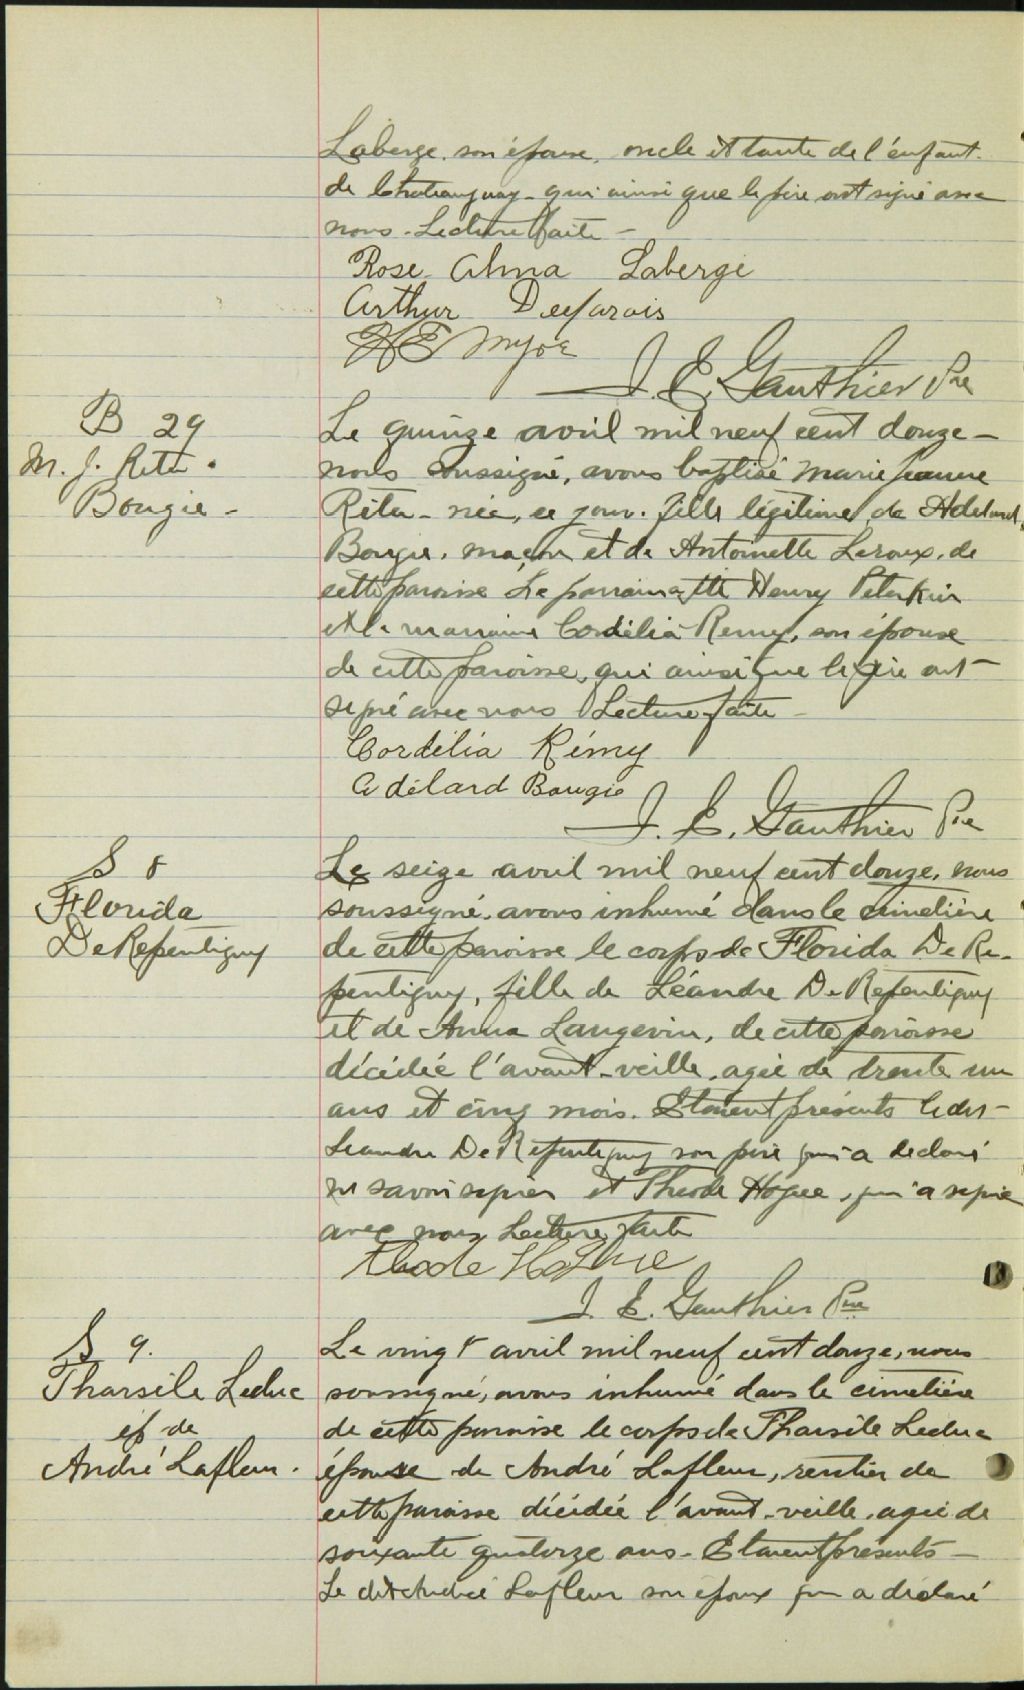 Laberge, son épouse, oncle et tante de l'enfant.
de Chateauguay - qui ainsi que le père ont signé avec
nous - Lecture faite -
Rose Alma Laberge
Arthur
J. E. Gauthier Ptre
B 29
M. J. Rita.
Bougie -
Le quinze avril mil neuf cent douze -
nous soussigné, avons baptisé Marie Jeanne
Rita - née, ce jour. fille légitime de Adélard
Bougie, maçon et de Antoinette Leroux, de
cette paroisse Le parrain a été Henry Peterkin
et la marraine Cordélia Remy, son épouse
de cette paroisse, qui ainsi que le père ont
signé avec nous Lecture faite -
Cordélia Rémy
Adélard Bougie
J. E. Gauthier Ptre
S 8
Florida
DeRepentigny
Le seize avril mil neuf cent douze, nous
soussigné, avons inhumé dans le cimetière
de cette paroisse le corps de Florida De Re-
pentigny, fille de Léandre De Repentigny
et de Anna Langevin, de cette paroisse
décédée l'avant-veille, agée de trente un
ans et cinq mois. Etaient présents ledit -
Leandre De Repentigny son père qui a declaré
ne savoir signer et Théode Hogue, qui a signé
avec nous Lecture faite
Theode Hogue
J. E. Gauthier Ptre
S 9.
Tharsile Leduc
ép de
André Lafleur.
Le vingt avril mil neuf cent douze, nous
soussigné, avons inhumé dans le cimetière
de cette paroisse le corps de Tharsile Leduc
épouse de André Lafleur, rentier de
cette paroisse décédée l'avant-veille, agée de
soixante quatorze ans - Etaient présents -
Le dit André Lafleur son époux qui a déclaré